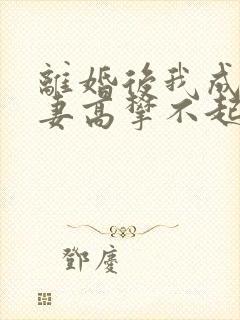 離婚後我成
妻高攀不起
鄧慶